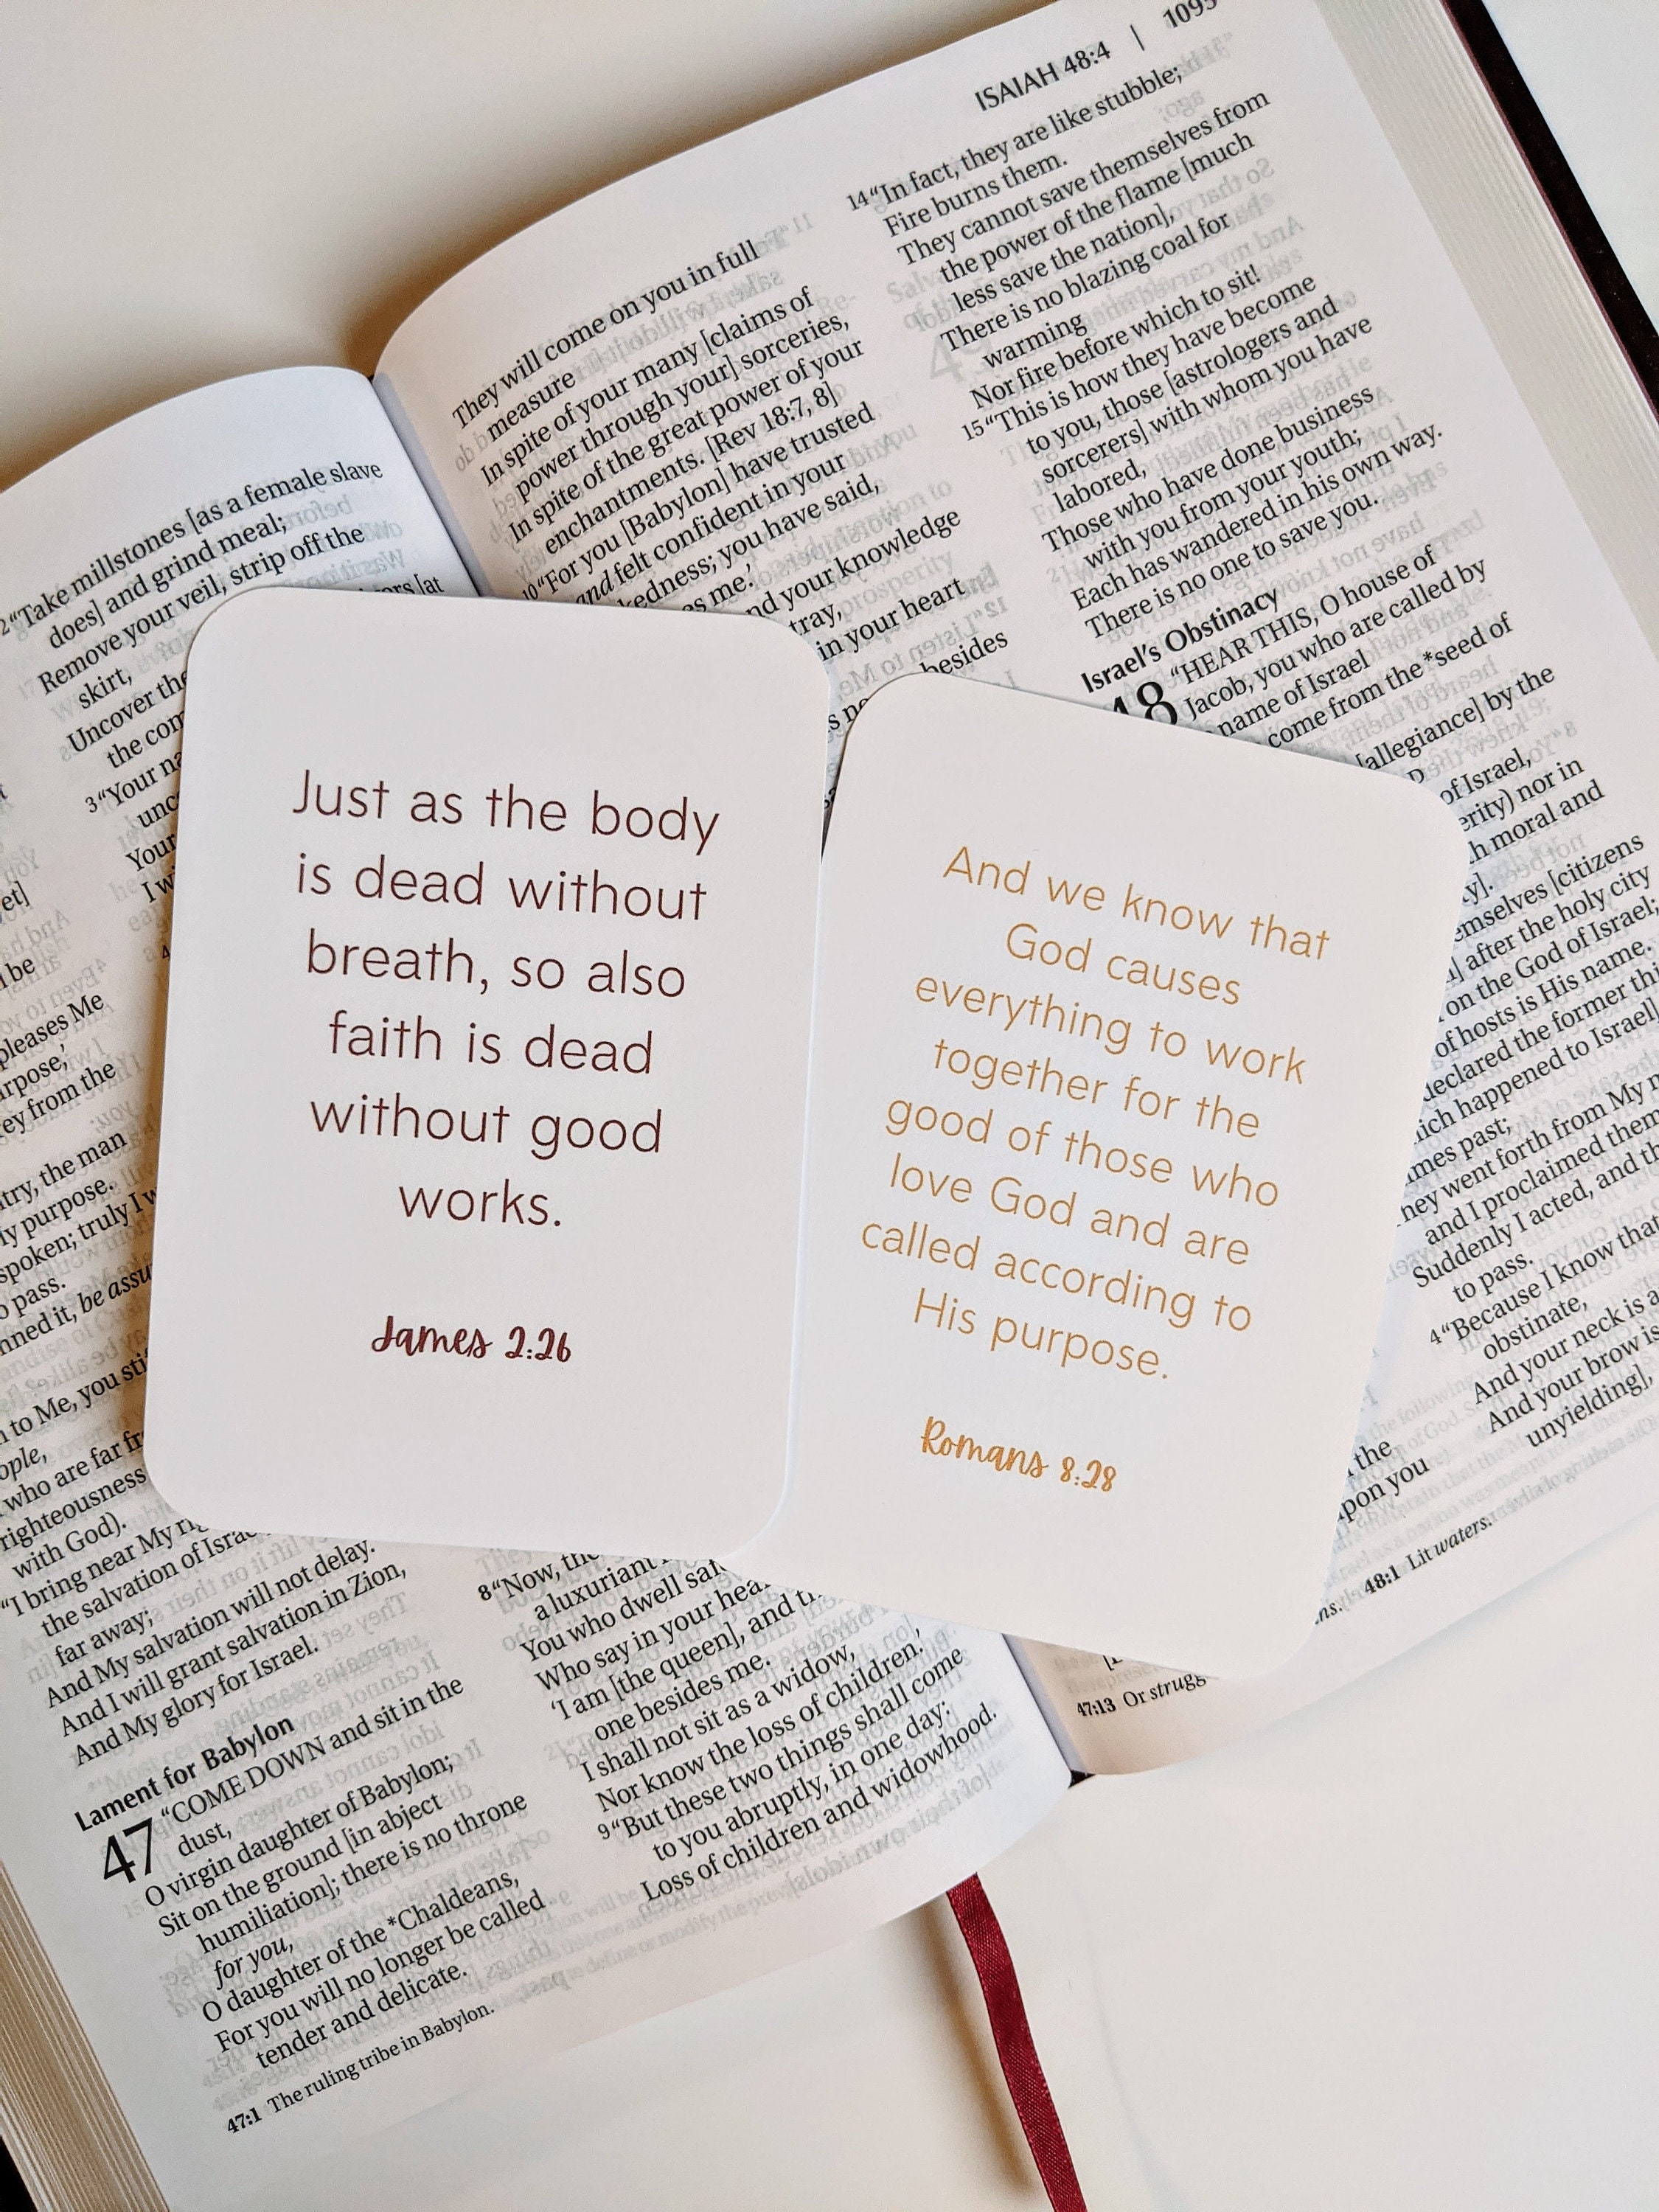 Just as the body
is dead without
breath, so also
faith is dead
without good
works.
James 2:26
And we know that
God causes
everything to work
together for the
good of those who
love God and are
called according to
His purpose.
Romans 8:28
et]
be
pleases Me
ey from the
try, the man
y purpose.
spoken; truly I w
o pass.
nned it, be assu
to Me, you
who are far
righteousness
with God).
“I bring near My
the salvation of
far away;
And My salvation will not delay.
And I will grant salvation in Zion,
And My glory for Israel.
Lament for Babylon
47 “COME DOWN and sit in the
dust,
O virgin daughter of Babylon;
Sit on the ground [in abject
humiliation]; there is no throne
for you,
O daughter of the *Chaldeans,
For you will no longer be called
tender and delicate.
47:1 The ruling tribe in Babylon.
2 “Take millstones [as a female slave
does] and grind meal;
Remove your veil, strip off the
skirt,
Uncover the
the com
3 “Your na
unc
Your
I w
8 “Now, the
a luxuriant
You who dwell
Who say in your
‘I am [the queen], and
one besides me.
I shall not sit as a widow,
Nor know the loss of children.’
9 “But these two things shall come
to you abruptly, in one day:
Loss of children and widowhood.
They will come on you in full
measure
In spite of your many [claims of
power through your] sorceries,
In spite of the great power of your
enchantments. [Rev 18:7, 8]
10 “For you [Babylon] have trusted
and felt confident in your
kedness; you have said,
es me.’
nd your knowledge
tray,
in your heart
besides
47:13 Or strugg
ISAIAH 48:4 | 1095
14 “In fact, they are like stubble;
Fire burns them.
They cannot save themselves from
the power of the flame [much
less save the nation],
There is no blazing coal for
warming
Nor fire before which to sit!
15 “This is how they have become
to you, those [astrologers and
sorcerers] with whom you have
labored,
Those who have done business
with you from your youth;
Each has wandered in his own way.
There is no one to save you.
Israel’s Obstinacy
48 “HEAR THIS, O house of
Jacob, you who are called by
name of Israel
come from the *seed of
[allegiance] by the
of Israel,
erity) nor in
h moral and
y].
emselves [citizens
] after the holy city
on the God of Israel;
of hosts is His name.
declared the former thi
ich happened to Israel]
mes past;
hey went forth from My
and I proclaimed them
Suddenly I acted, and
to pass.
4 “Because I know that
obstinate,
And your neck is a
And your brow is
unyielding],
the
pon you
48:1 Lit waters.